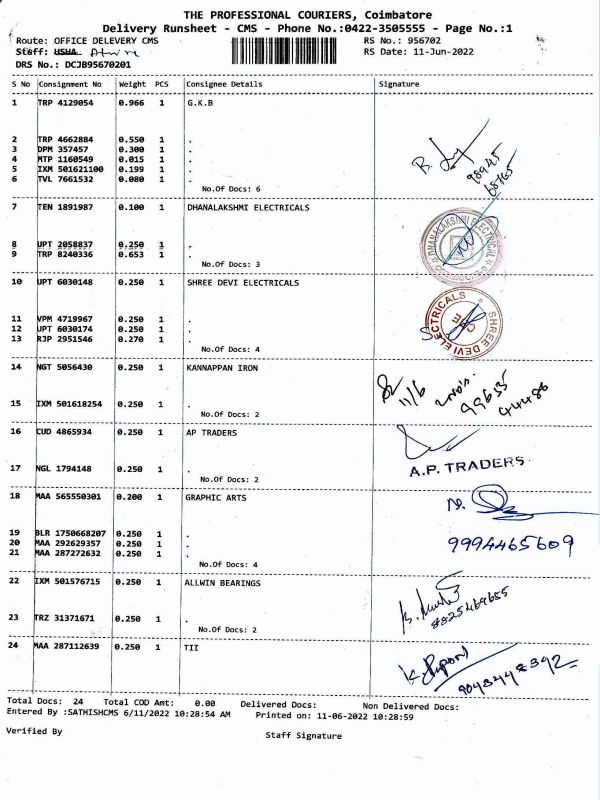 THE PROFESSIONAL COURIERS, Coimbatore
Delivery Runsheet - CMS - Phone No.:0422-3505555 - Page No.:1
Route: OFFICE DELEVERY CMS RS No.: 956702
Staff: USHA RS Date: 11-Jun-2022
DRS No.: DCJB95670201
S No Consignment No Weight PCS Consignee Details Signature
1 TRP 4129054 0.966 1 G.K.B
2 TRP 4662884 0.550 1 .
3 DPM 357457 0.300 1 .
4 MTP 1160549 0.015 1 .
5 IXM 501621100 0.199 1 .
6 TVL 7661532 0.080 1 .
98945
68765
No.Of Docs: 6
7 TEN 1891987 0.100 1 DHANALAKSHMI ELECTRICALS
DHANALAKSHMI ELECTRICAL
8 UPT 2058837 0.250 1 .
9 TRP 8240336 0.653 1 .
No.Of Docs: 3
10 UPT 6030148 0.250 1 SHREE DEVI ELECTRICALS
SHREE DEVI ELECTRICALS
11 VPM 4719967 0.250 1 .
12 UPT 6030174 0.250 1 .
13 RJP 2951546 0.270 1 .
No.Of Docs: 4
14 NGT 5056430 0.250 1 KANNAPPAN IRON
11/6
15 IXM 501618254 0.250 1 .
No.Of Docs: 2
16 CUD 4865934 0.250 1 AP TRADERS
A.P. TRADERS
17 NGL 1794148 0.250 1 .
No.Of Docs: 2
18 MAA 565550301 0.200 1 GRAPHIC ARTS
19 BLR 1750668207 0.250 1 .
20 MAA 292629357 0.250 1 .
21 MAA 287272632 0.250 1 .
9994465609
No.Of Docs: 4
22 IXM 501576715 0.250 1 ALLWIN BEARINGS
8825469655
23 TRZ 31371671 0.250 1 .
No.Of Docs: 2
24 MAA 287112639 0.250 1 TII
9043448342
Total Docs: 24 Total COD Amt: 0.00 Delivered Docs: Non Delivered Docs:
Entered By :SATHISHCMS 6/11/2022 10:28:54 AM Printed on: 11-06-2022 10:28:59
Verified By Staff Signature